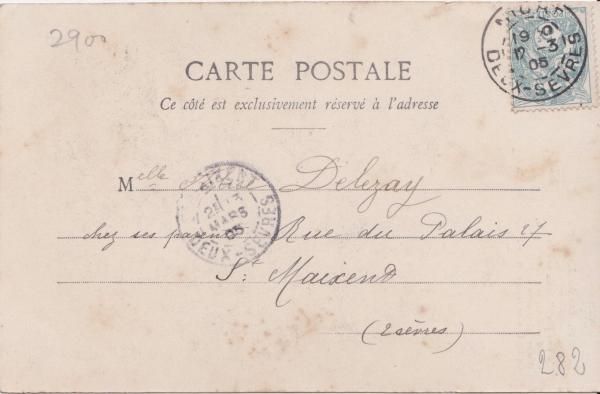 2900
NIORT
19
5-3
05
DEUX-SEVRES
CARTE POSTALE
Ce côté est exclusivement réservé à l'adresse
Melle Delezay
MAIXENT
MARS
05
DEUX-SEVRES
chez ses parents Rue du Palais 27
St Maixent
(2 sèvres)
282